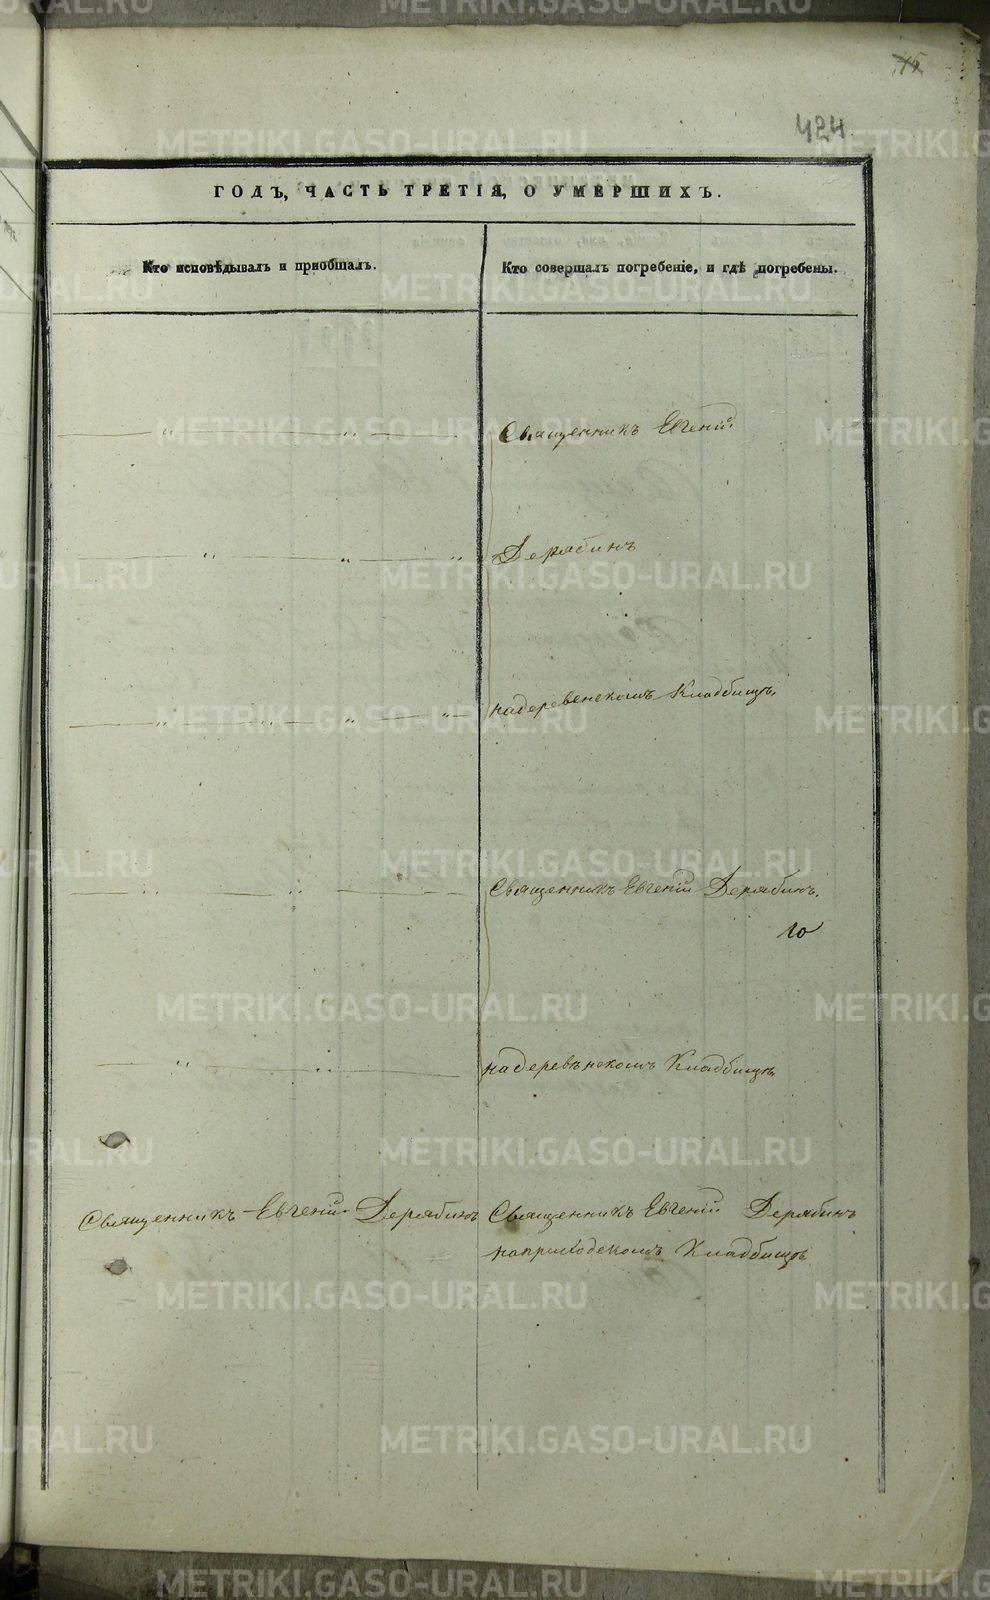 424
ГОДЪ, ЧАСТЬ ТРЕТІЯ, О УМЕРШИХЪ.
Кто исповѣдывалъ и пріобщалъ.
Кто совершалъ погребеніе, и гдѣ погребены.
Священникъ Евгеній
Дерябинъ
на деревенскомъ Кладбищѣ.
Священникъ Евгеній Дерябинъ.
на деревѣнскомъ Кладбищѣ
Священникъ Евгеній Дерябинъ
Священникъ Евгеній Дерябинъ
на приходскомъ Кладбищѣ
METRIKI.GASO-URAL.RU